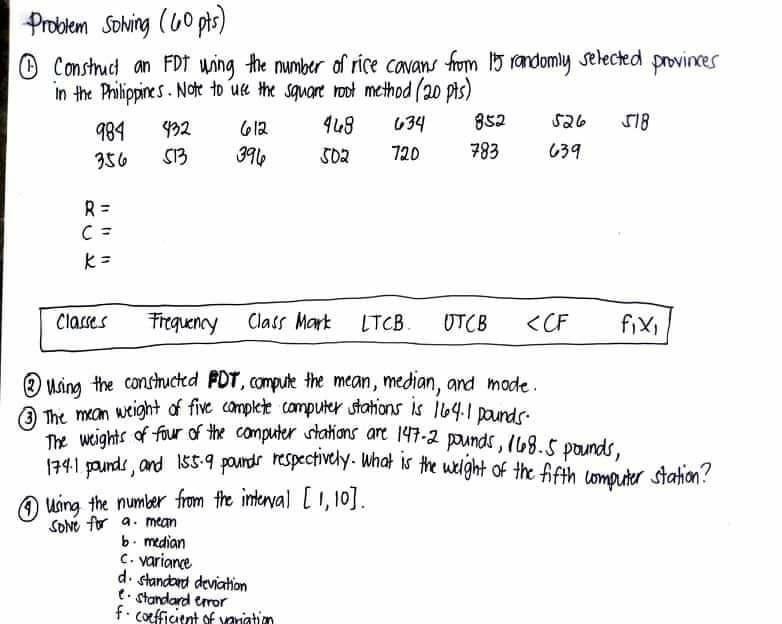 Problem Solving (60 pts)
① Construct an FDT using the number of rice cavans from 15 randomly selected provinces
in the Philippines. Note to use the square root method (20 pts)
984 432 612 468 634 852 526 518
356 513 396 502 720 783 639
R =
C =
K =
Classes Frequency Class Mark LTCB. UTCB <CF fiXi
② Using the constructed FDT, compute the mean, median, and mode.
③ The mean weight of five complete computer stations is 164.1 pounds.
The weights of four of the computer stations are 147.2 pounds, 168.5 pounds,
174.1 pounds, and 155.9 pounds respectively. What is the weight of the fifth computer station?
④ Using the number from the interval [1, 10].
Solve for a. mean
b. median
c. variance
d. standard deviation
e. standard error
f. coefficient of variation